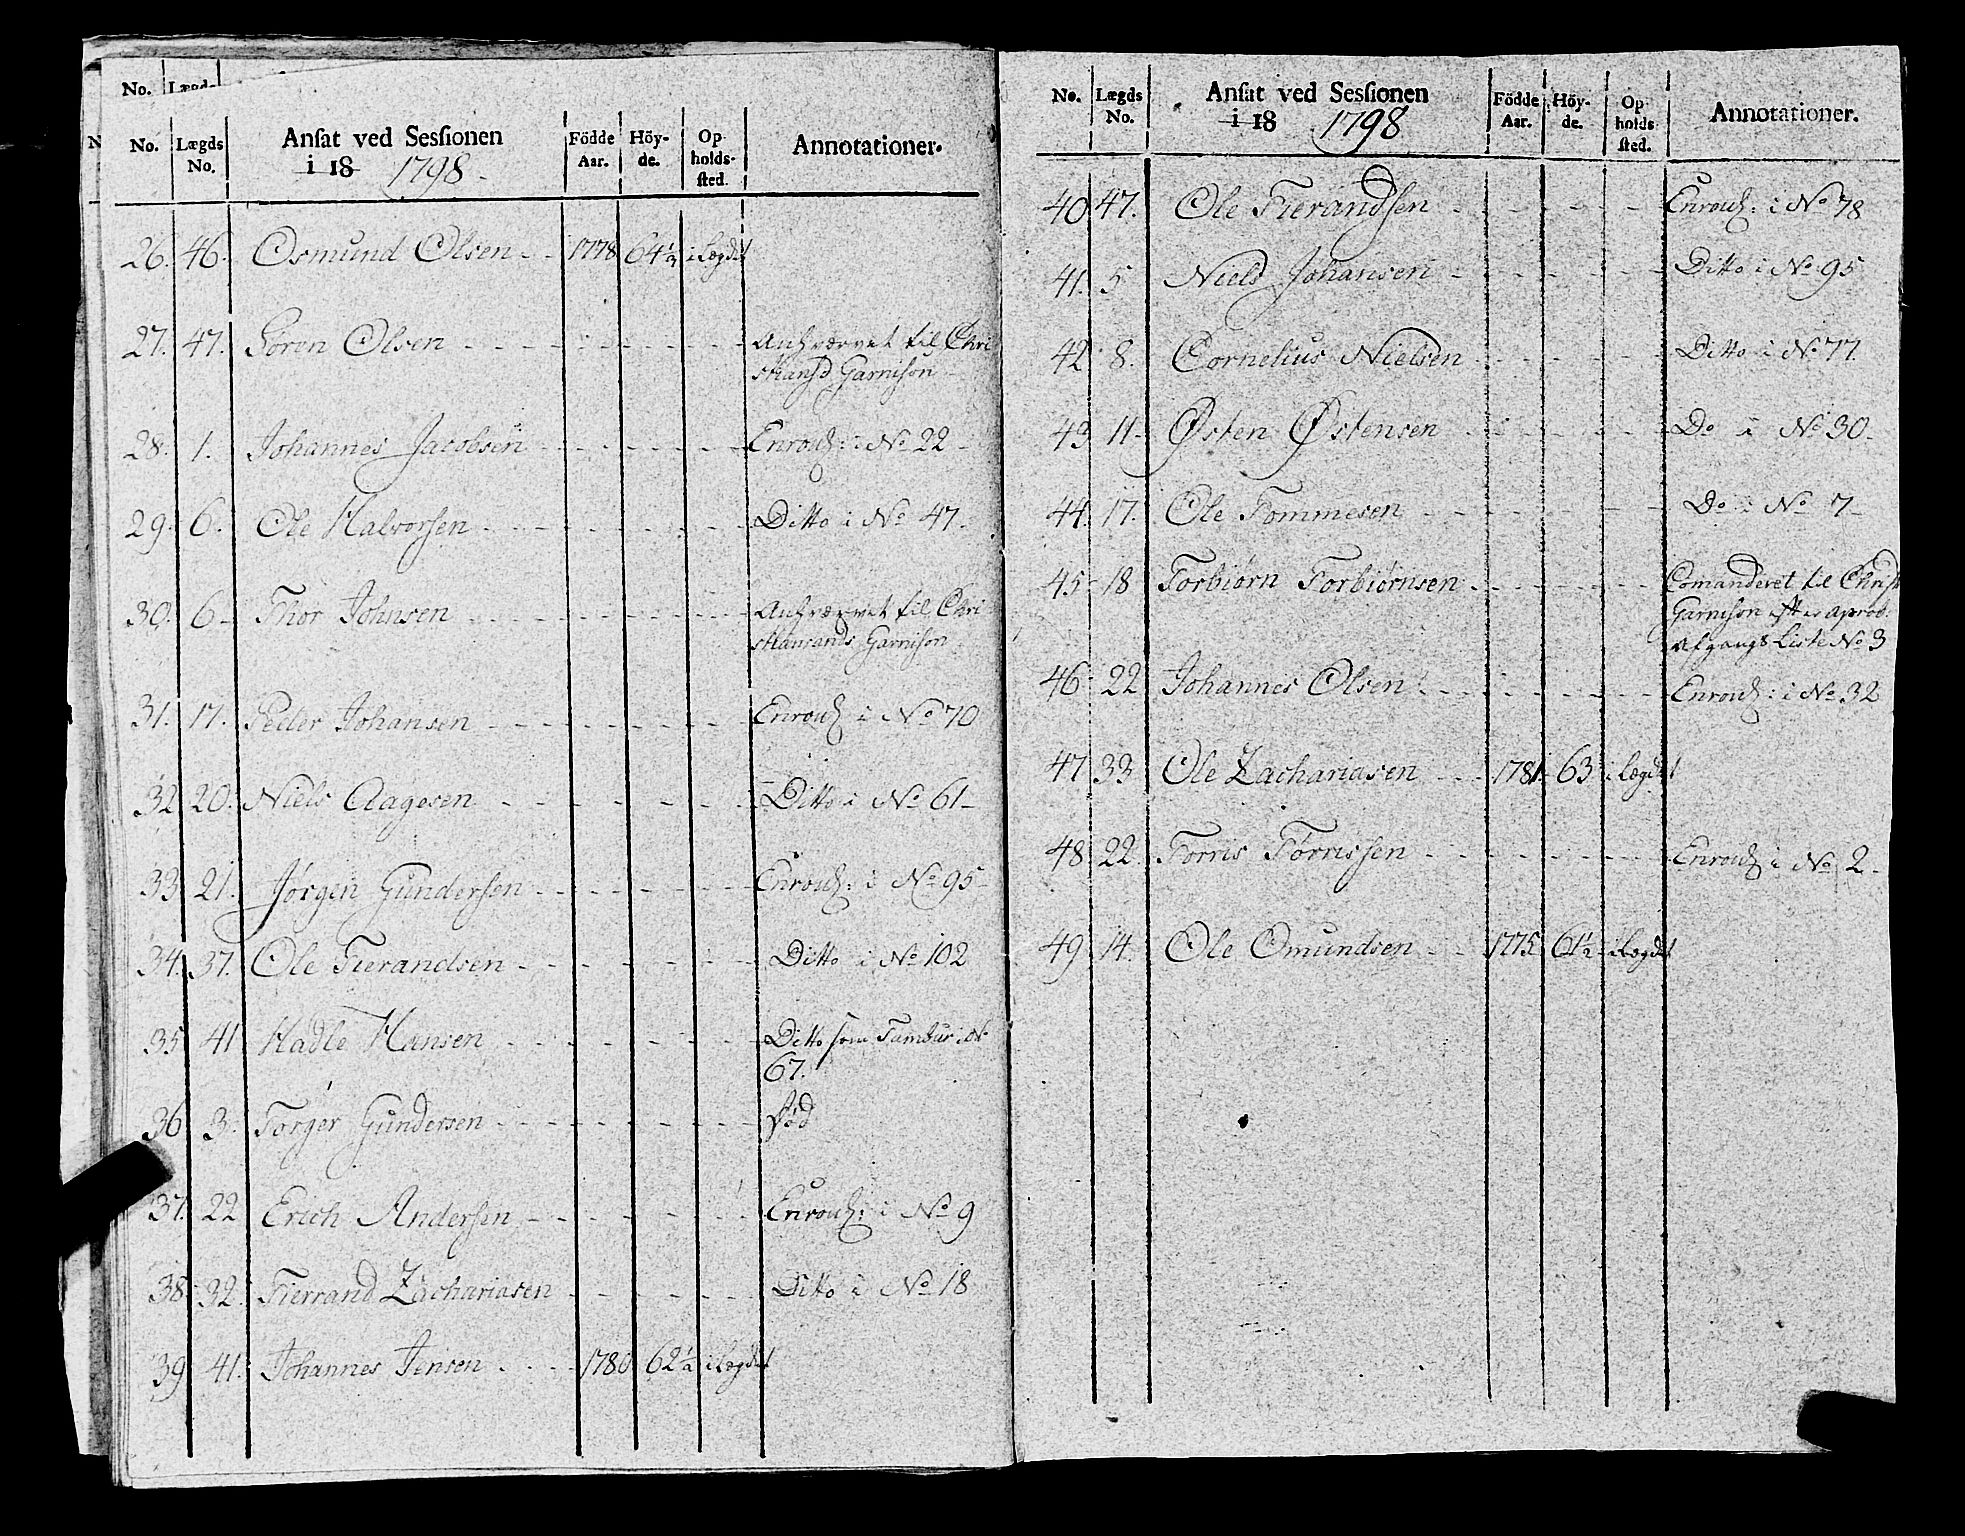 No. Lægds
No. Lægds No. Ansat ved Sessionen i 18 1798. Födde Aar. Höyde. Opholdssted. Annotationer.
26. 46. Osmund Olsen 1778 64½ i Lægdet
27. 47. Sören Olsen Anhværvet til Chri
stiansd Garnison
28. 1. Johannes Jacobsen Enroull: i No 22
29. 6. Ole Halvorsen Ditto i No 47.
30. 6 Thor Johnsen Anhværvet til Chri
stiansands Garnison
31. 17. Peder Johansen Enroull i No 70
32 20. Niels Aagesen Ditto i No 61
33 21. Jørgen Gundersen Enroull: i No 95
34. 37. Ole Fierandsen Ditto i No 102
35 41 Hadle Hansen Ditto som Tambur i No
67.
36 3. Torger Gundersen Död
37. 22 Erich Andersen Enroull: i No 9
38 32. Fierrand Zachariasen Ditto i No 18
39 41. Johannes Jensen 1780 62½ i Lægdet
No. Lægds No. Ansat ved Sessionen i 18 1798 Födde Aar. Höyde. Opholdssted. Annotationer.
40 47. Ole Fierandsen Enroull: i No 78
41. 5 Niels Johansen Ditto i No 95
42 8. Cornelius Nielsen Ditto i No 77
43 11 Østen Østensen Do i No 30
44. 17. Ole Tommesen Do i No 7
45 18 Torbiørn Torbiørnsen Comanderet til Christ
Garnison efter aprob:
Afgangs Liste No 3
46 22 Johannes Olsen Enroull: i No 32
47 33 Ole Zachariasen 1781 63 i Lægdet
48 22 Torris Tørrissen Enroull i No 2
49 14. Ole Omundsen 1775 61½ i Lægdet